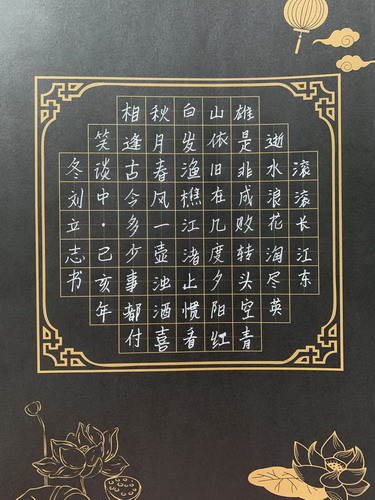 滚滚长江东
逝水浪花淘尽英
雄是非成败转头空青
山依旧在几度夕阳红
白发渔樵江渚上惯看
秋月春风一壶浊酒喜
相逢古今多少事都付
笑谈中·己亥年
冬刘立志书